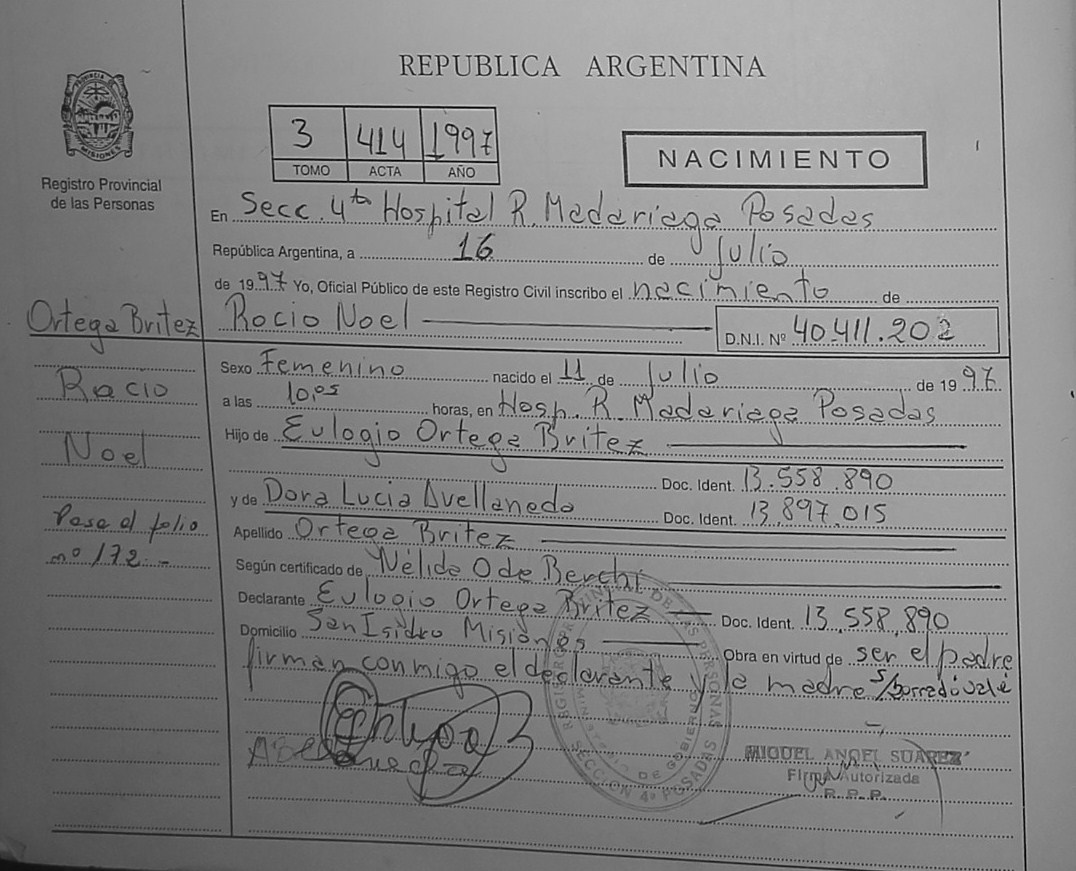 REPUBLICA ARGENTINA
PROVINCIA DE MISIONES
Registro Provincial
de las Personas
3 414 1997
TOMO ACTA AÑO
NACIMIENTO
En Secc. 4ta Hospital R. Madariaga Posadas
República Argentina, a 16 de julio
de 1997 Yo, Oficial Público de este Registro Civil inscribo el nacimiento de
Ortega Britez Rocio Noel D.N.I. Nº 40.411.202
Rocio
Noel
Pasa al folio
nº 172-
Sexo Femenino nacido el 11 de julio de 1997
a las 10,05 horas, en Hosp. R. Madariaga Posadas
Hijo de Eulogio Ortega Britez
Doc. Ident. 13.558.890
y de Dora Lucia Avellaneda Doc. Ident. 13,897,015
Apellido Ortega Britez
Según certificado de Nélida O de Berchi
Declarante Eulogio Ortega Britez Doc. Ident. 13,558,890
Domicilio San Isidro Misiones Obra en virtud de ser el padre
firman conmigo el declarante y la madre s/borrado vale
REGISTRO PROVINCIAL DE LAS PERSONAS
DE GOBIERNO
SECCION 4ª POSADAS
MIGUEL ANGEL SUAREZ
Firma Autorizada
R. P. P.